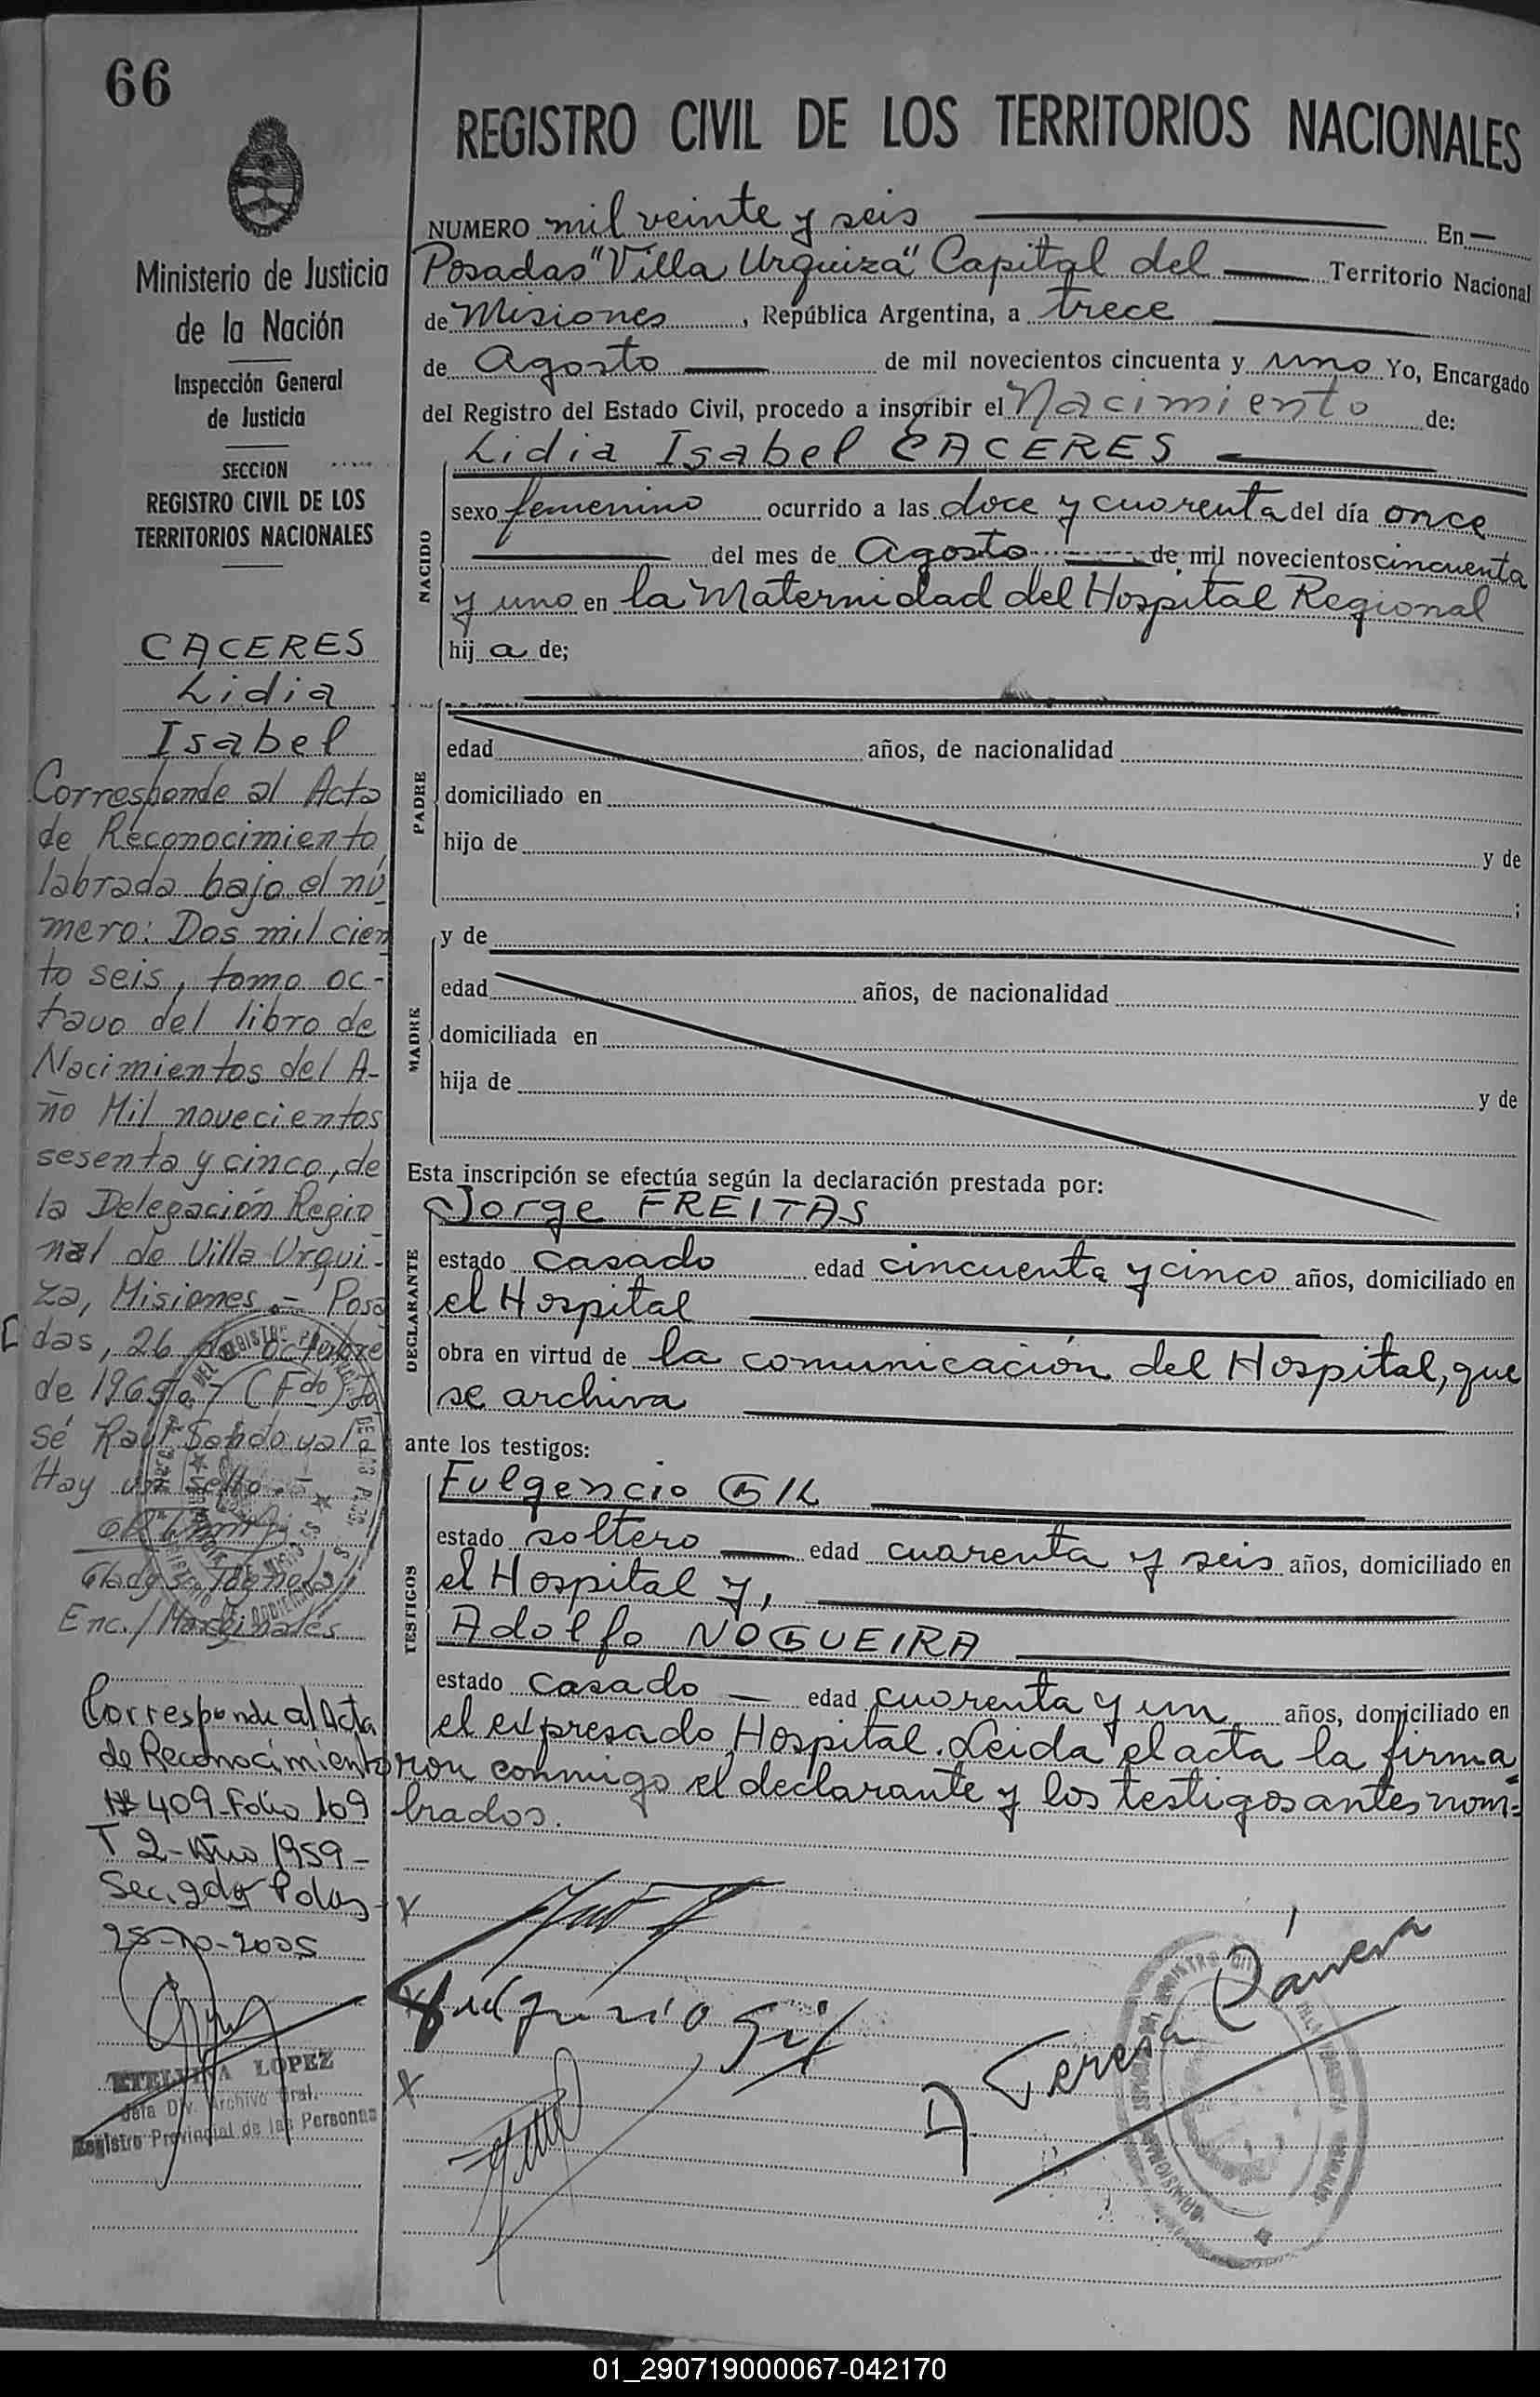 66
Ministerio de Justicia
de la Nación
Inspección General
de Justicia
SECCION
REGISTRO CIVIL DE LOS
TERRITORIOS NACIONALES
CACERES
Lidia
Isabel
Corresponde al Acta
de Reconocimiento
labrada bajo el nú
mero: Dos mil cien
to seis, tomo oc-
tavo del libro de
Nacimientos del A-
ño Mil novecientos
sesenta y cinco, de
la Delegación Regio
nal de Villa Urqui-
za, Misiones.- Posa
das, 26 de octubre
de 1969 (Fdo) Jo
sé Raúl Sandoval
Hay un sello.-
Enc./Marginales
Corresponde al Acta
de Reconocimiento
Nº 409-Folio 169
T 2-Año 1959-
Sec. 2da Pdas
25-10-2005
ETELVINA LOPEZ
Jefa Div. Archivo Gral.
Registro Provincial de las Personas
REGISTRO CIVIL DE LOS TERRITORIOS NACIONALES
NUMERO mil veinte y seis En
Posadas "Villa Urquiza" Capital del Territorio Nacional
de Misiones, República Argentina, a trece
de Agosto de mil novecientos cincuenta y uno Yo, Encargado
del Registro del Estado Civil, procedo a inscribir el Nacimiento de:
Lidia Isabel CACERES
NACIDO
sexo femenino ocurrido a las doce y cuarenta del día once
del mes de Agosto de mil novecientos cincuenta
y uno en la Maternidad del Hospital Regional
hij a de;
PADRE
edad años, de nacionalidad
domiciliado en
hijo de y de
;
MADRE
y de
edad años, de nacionalidad
domiciliada en
hija de y de
Esta inscripción se efectúa según la declaración prestada por:
Jorge FREITAS
DECLARANTE
estado casado edad cincuenta y cinco años, domiciliado en
el Hospital
obra en virtud de la comunicación del Hospital, que
se archiva
ante los testigos:
Fulgencio GIL
TESTIGOS
estado soltero edad cuarenta y seis años, domiciliado en
el Hospital y,
Adolfo NOGUEIRA
estado casado edad cuarenta y un años, domiciliado en
el expresado Hospital. Leida el acta la firma
ron conmigo el declarante y los testigos antes nom=
brados.
Fulgencio Gil
Teresa
01_290719000067-042170